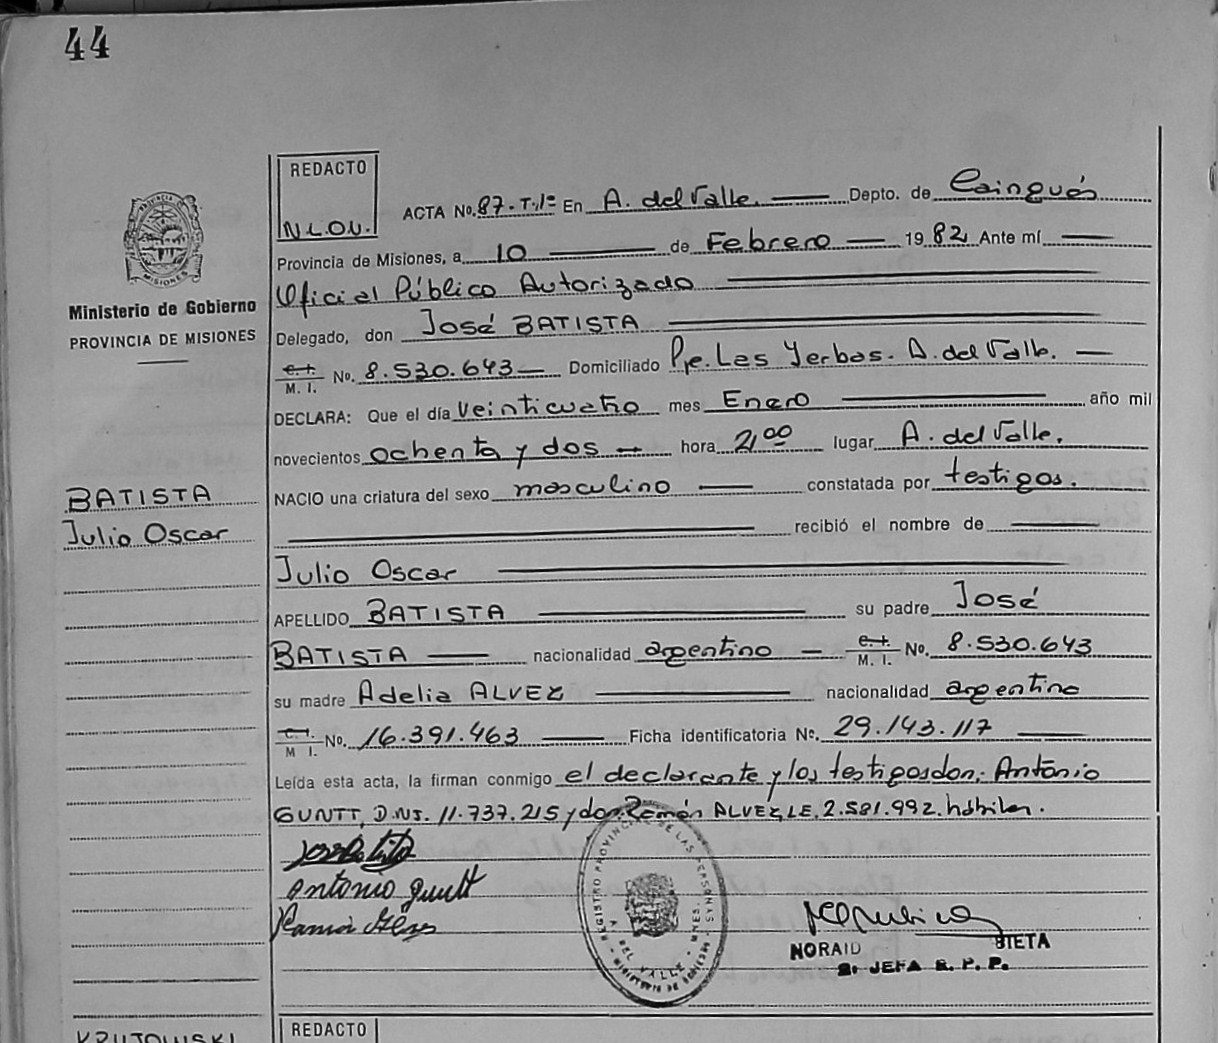 44
REDACTO
N.L.O.V.
ACTA No. 87-T.1º En A. del Valle. Depto. de Cainguás
Provincia de Misiones, a 10 de Febrero 1982 Ante mí
Oficial Público Autorizado
Ministerio de Gobierno
PROVINCIA DE MISIONES
Delegado, don José BATISTA
C. I. M. I. No. 8.530.643 Domiciliado Pje. Las Yerbas. A. del Valle.
DECLARA: Que el día veinticuatro mes Enero año mil
novecientos ochenta y dos hora 21,00 lugar A. del Valle.
BATISTA
Julio Oscar
NACIO una criatura del sexo masculino constatada por testigos.
recibió el nombre de
Julio Oscar
APELLIDO BATISTA su padre José
BATISTA nacionalidad argentino C. I. M. I. No. 8.530.643
su madre Adelia ALVEZ nacionalidad argentina
C. I. M I. No. 16.391.463 Ficha identificatoria No. 29.143.117
Leída esta acta, la firman conmigo el declarante y los testigos don: Antonio
GUNTT, D.N.I. 11.737.215 y don Ramón ALVEZ, L.E. 2.581.992. hábiles.
Antonio guntt
Ramón Alves
REGISTRO PROVINCIAL DE LAS PERSONAS
A. DEL VALLE - MNES.
MINISTERIO DE GOBIERNO
NORAID BIETA
JEFA R. P. P.
KRUJOWSKI
REDACTO